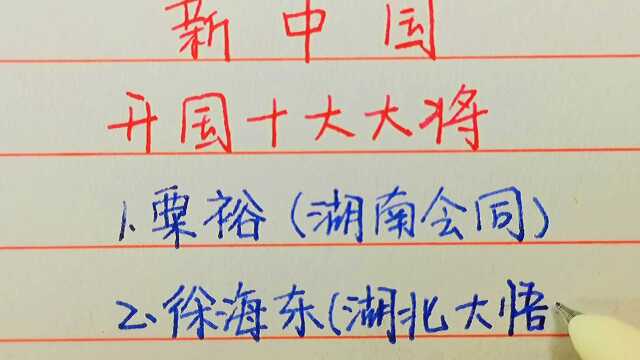 新中国
开国十大大将
1.粟裕(湖南会同)
2.徐海东(湖北大悟